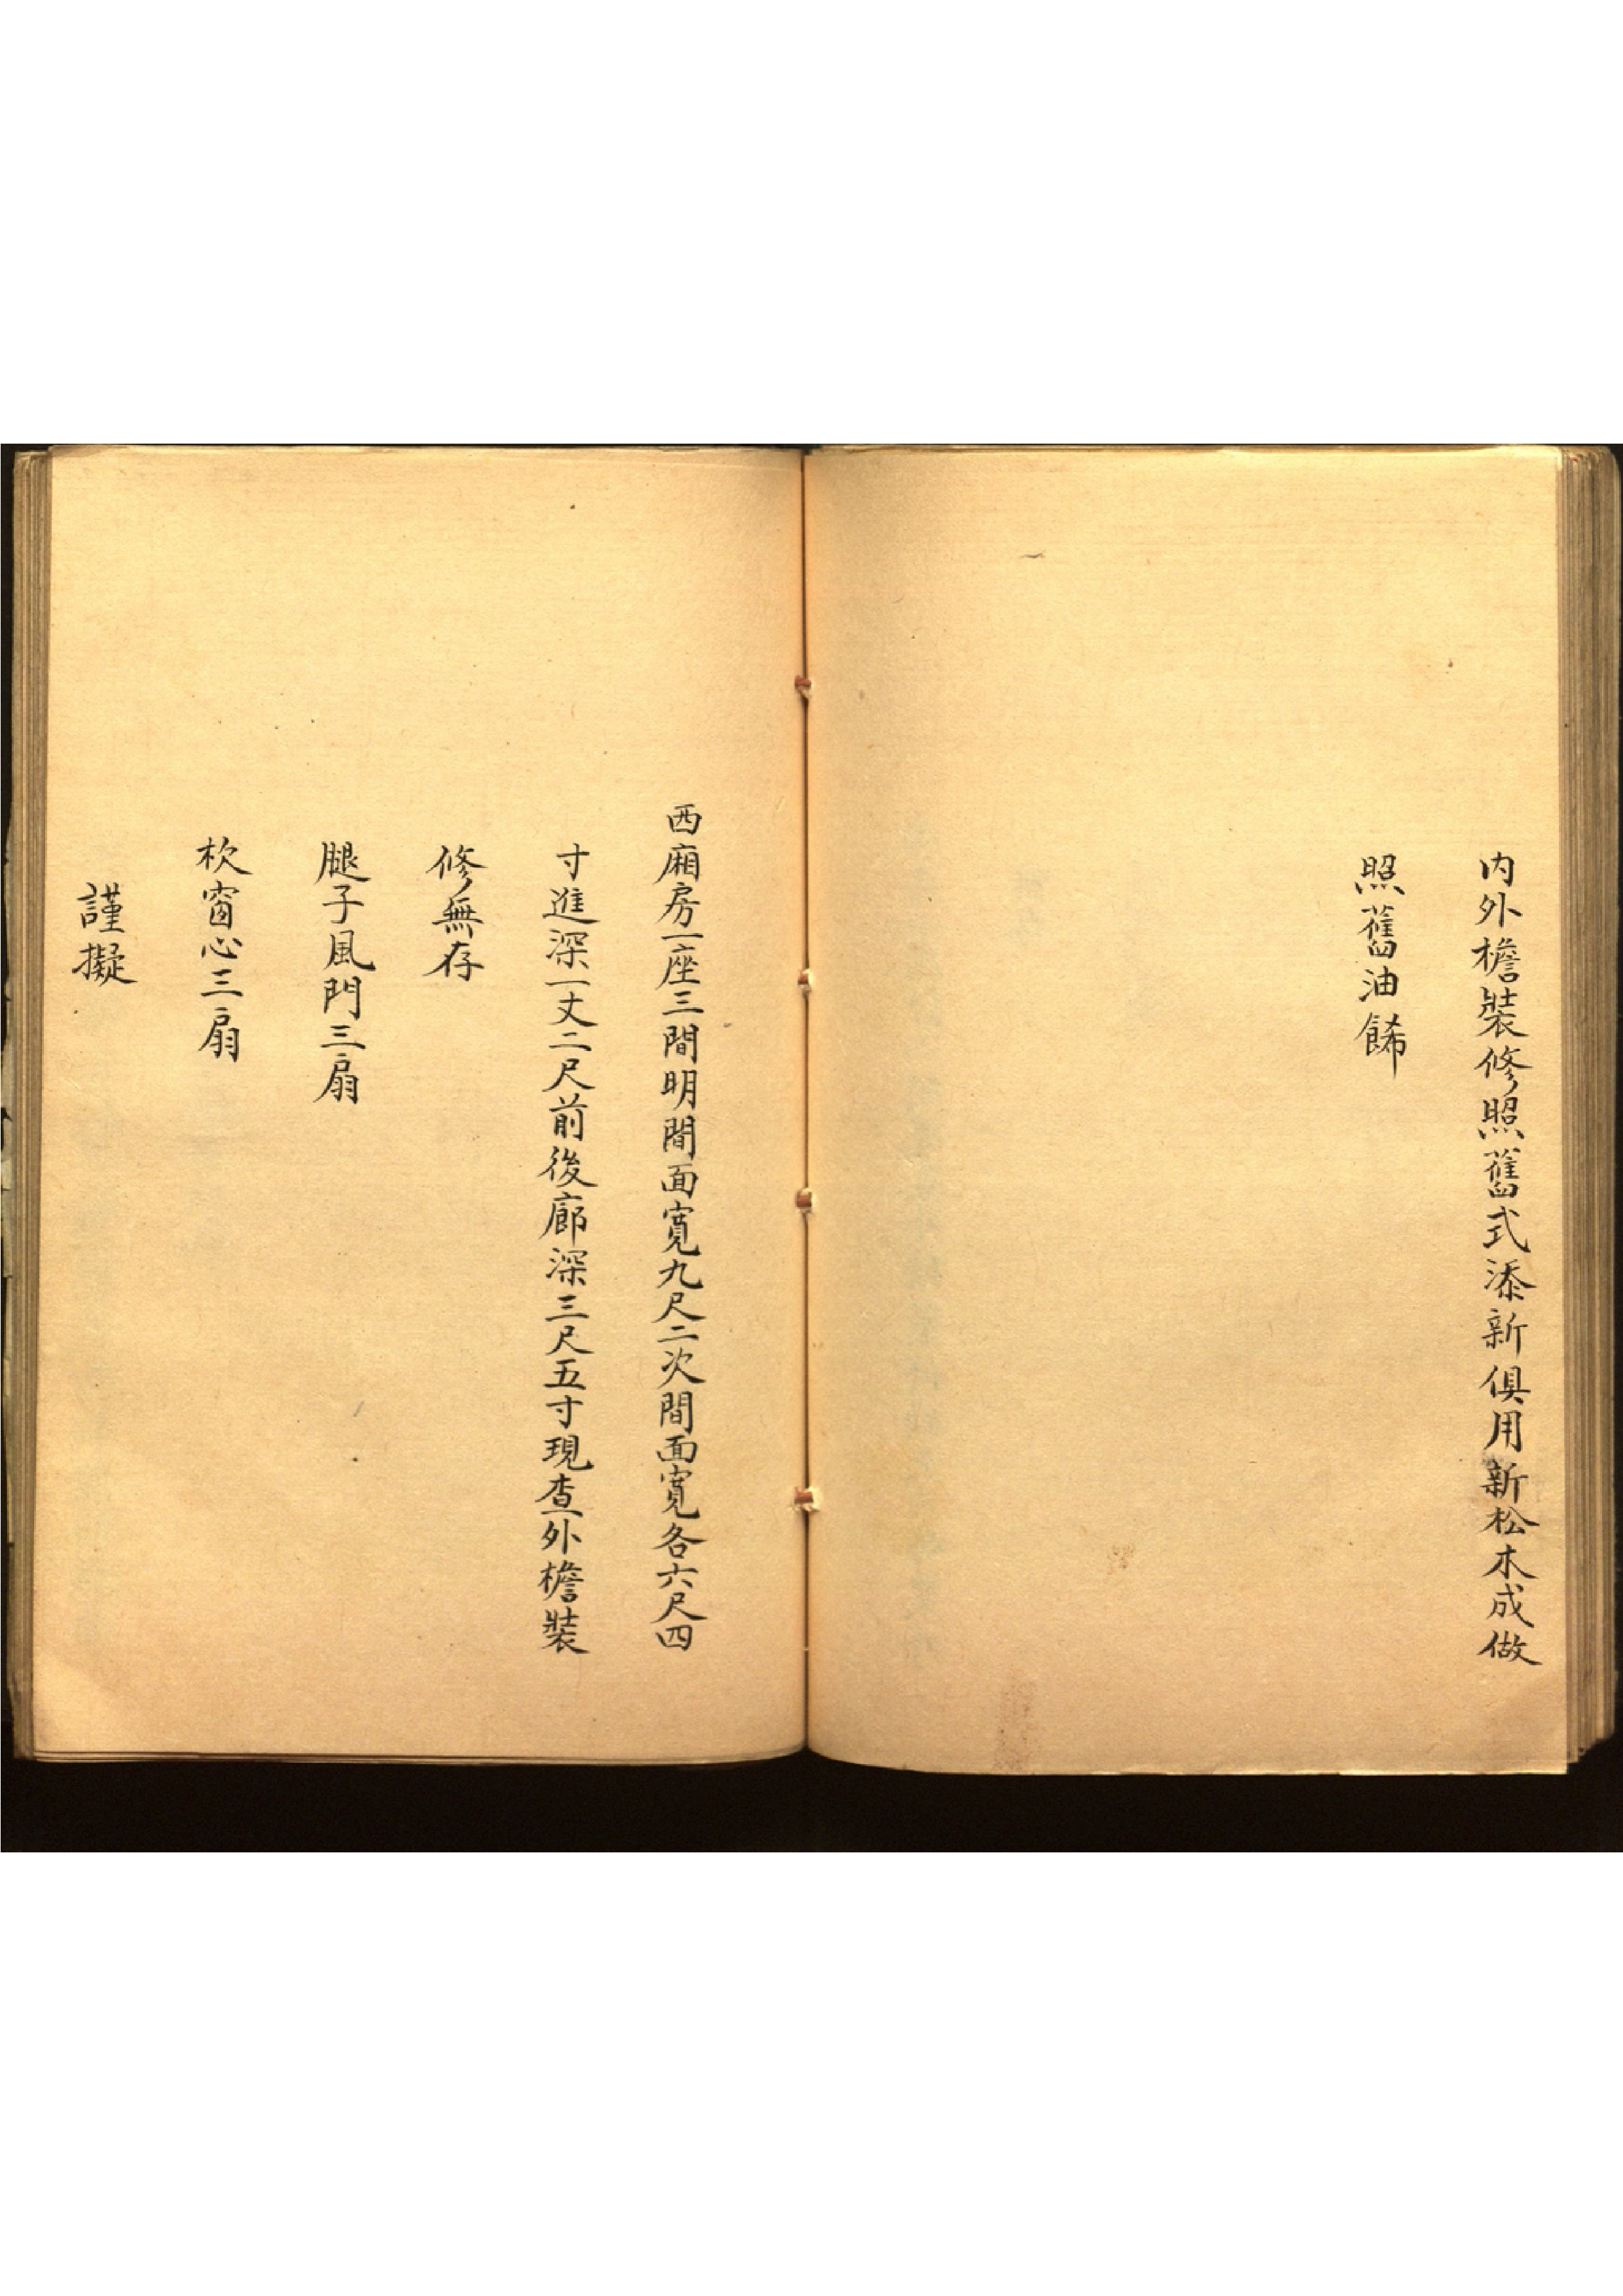 内外檐裝修照舊式添新俱用新松木成做
照舊油餙
西廂房一座三間明間面寬九尺二次間面寬各六尺四
寸進深一丈二尺前後廊深三尺五寸現查外檐裝
修無存
腿子風門三扇
栨窗心三扇
謹擬